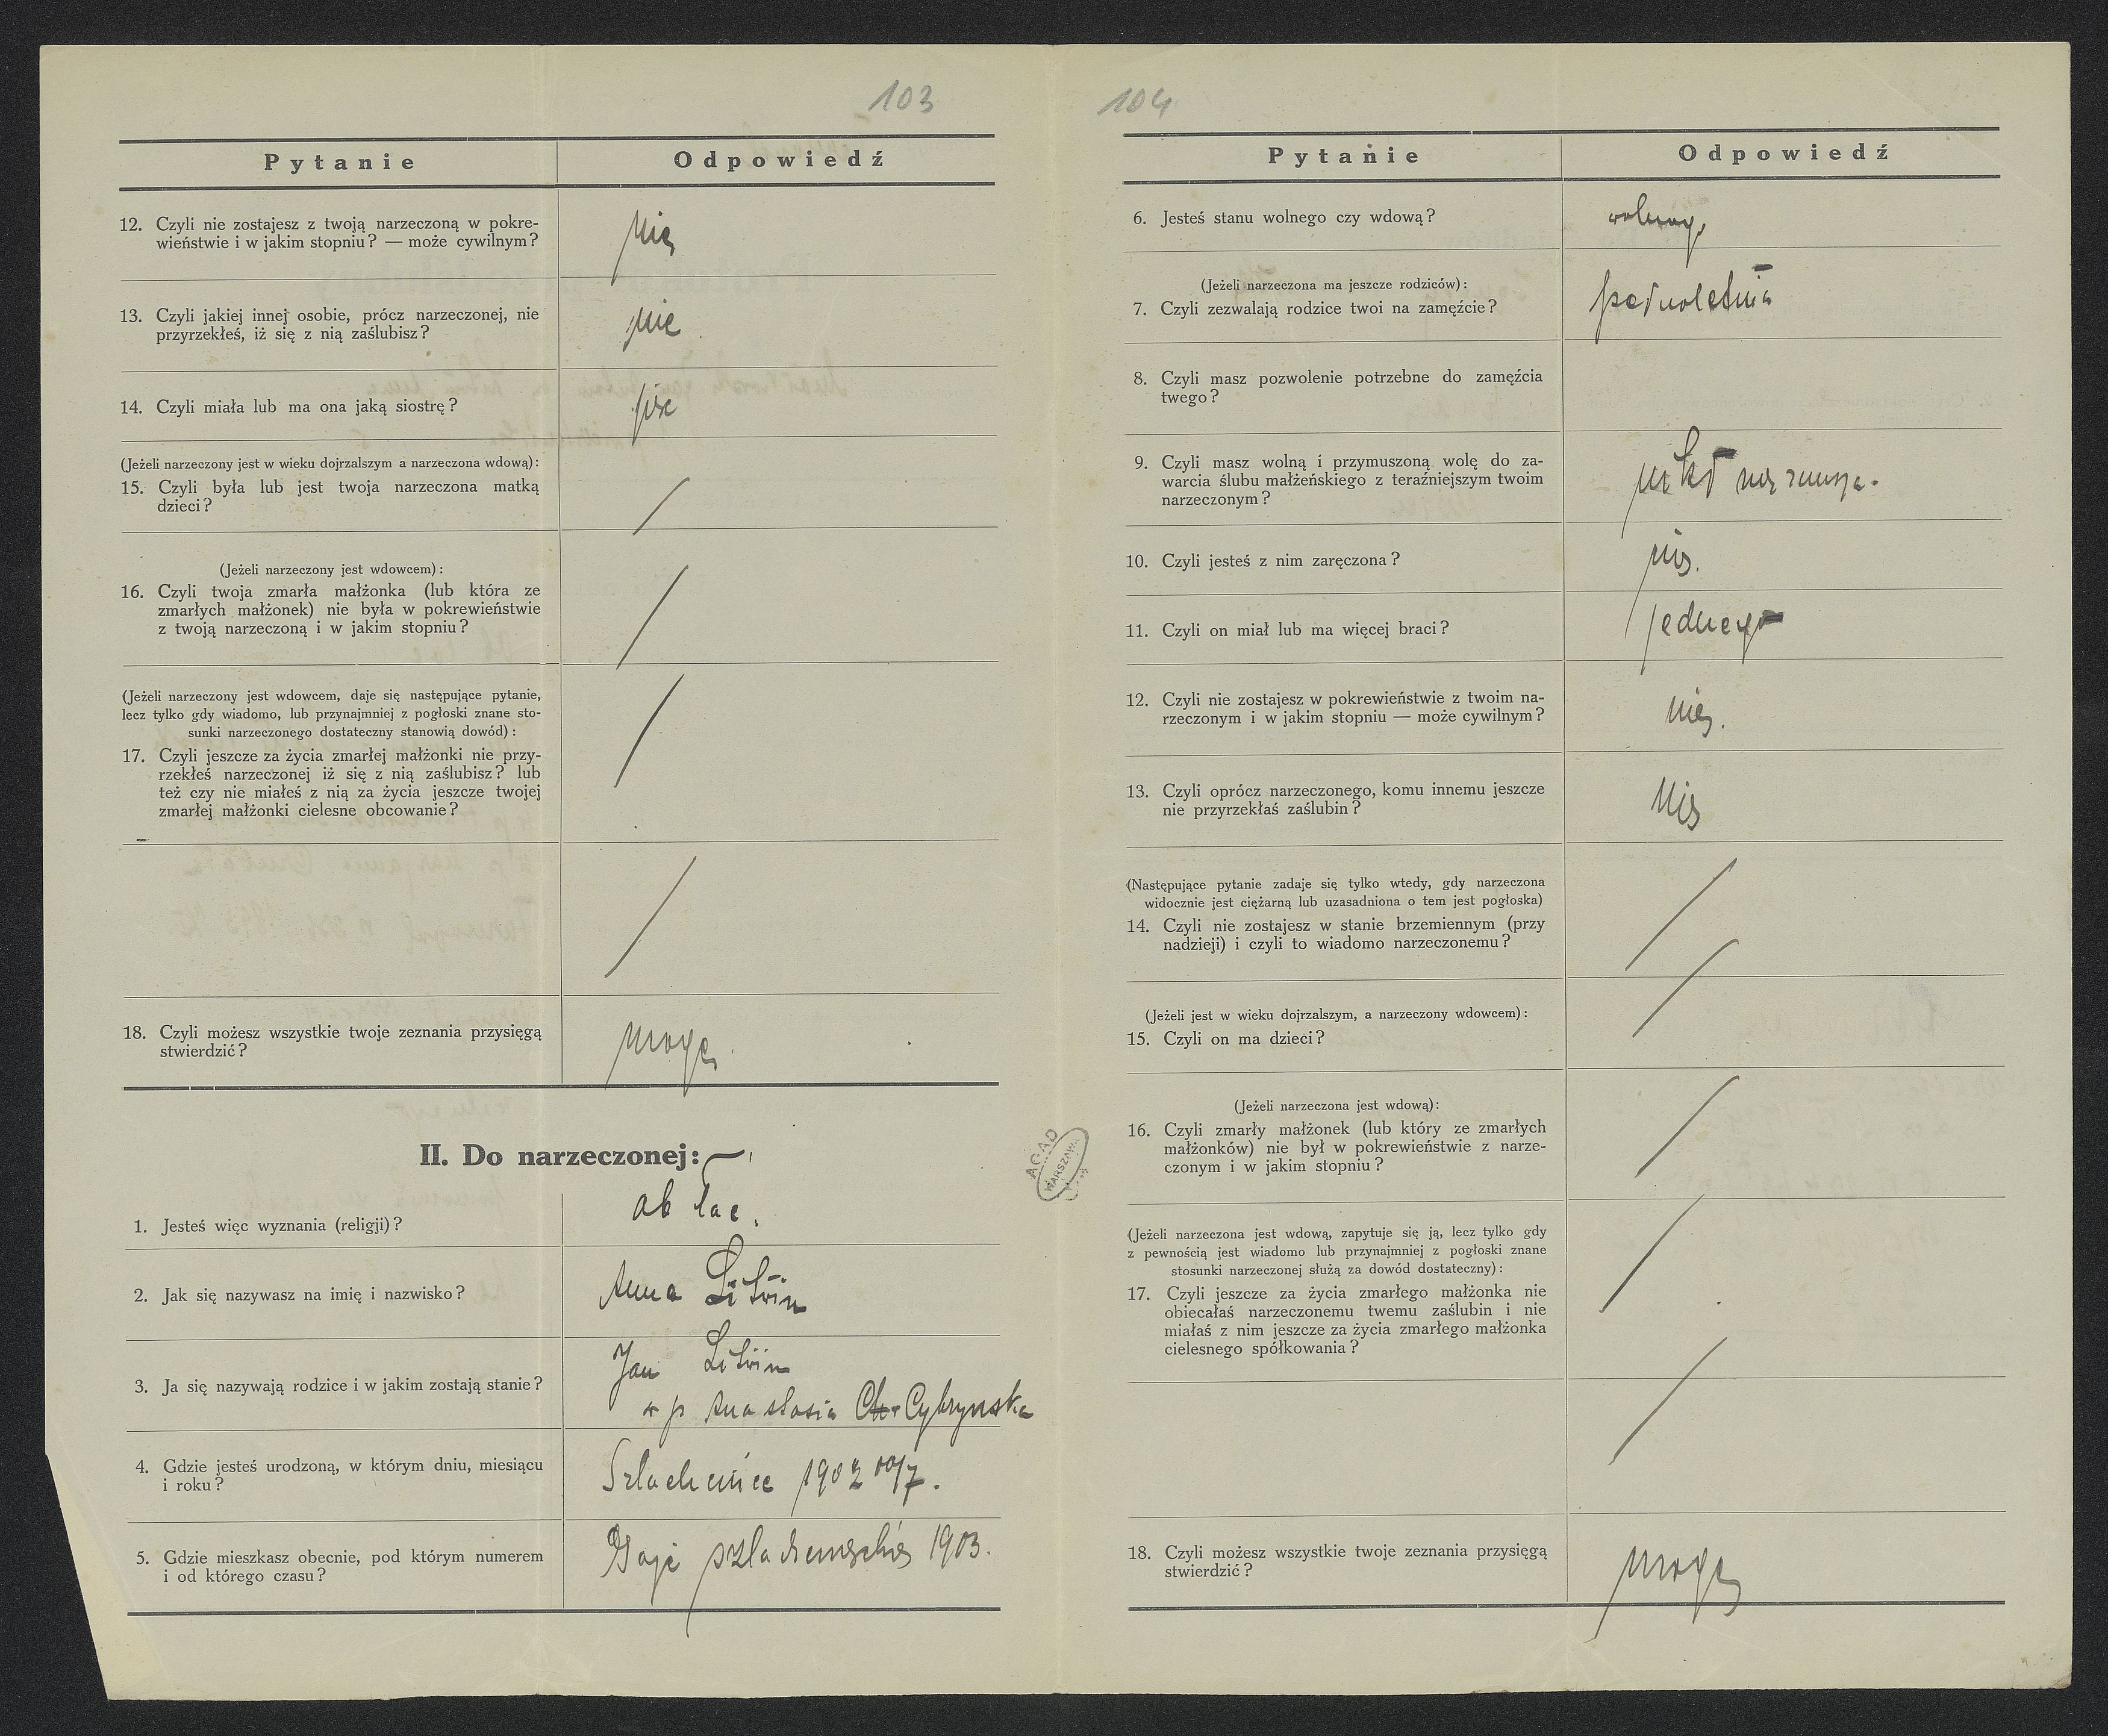 103
Pytanie Odpowiedź
12. Czyli nie zostajesz z twoją narzeczoną w pokre-
wieństwie i w jakim stopniu? — może cywilnym?
nie
13. Czyli jakiej innej osobie, prócz narzeczonej, nie
przyrzekłeś, iż się z nią zaślubisz?
nie
14. Czyli miała lub ma ona jaką siostrę?
(Jeżeli narzeczony jest w wieku dojrzalszym a narzeczona wdową):
15. Czyli była lub jest twoja narzeczona matką
dzieci?
(Jeżeli narzeczony jest wdowcem):
16. Czyli twoja zmarła małżonka (lub która ze
zmarłych małżonek) nie była w pokrewieństwie
z twoją narzeczoną i w jakim stopniu?
(Jeżeli narzeczony jest wdowcem, daje się następujące pytanie,
lecz tylko gdy wiadomo, lub przynajmniej z pogłoski znane sto-
sunki narzeczonego dostateczny stanowią dowód):
17. Czyli jeszcze za życia zmarłej małżonki nie przy-
rzekłeś narzeczonej iż się z nią zaślubisz? lub
też czy nie miałeś z nią za życia jeszcze twojej
zmarłej małżonki cielesne obcowanie?
18. Czyli możesz wszystkie twoje zeznania przysięgą
stwierdzić?
mogę
II. Do narzeczonej:
1. Jesteś więc wyznania (religji)?
ob łac.
2. Jak się nazywasz na imię i nazwisko?
Anna Litwin
3. Ja się nazywają rodzice i w jakim zostają stanie?
Jan Litwin
Cybrynska
4. Gdzie jesteś urodzoną, w którym dniu, miesiącu
i roku?
Szlachcince 1902
5. Gdzie mieszkasz obecnie, pod którym numerem
i od którego czasu?
Gaje 1903.
AGAD
WARSZAWA
104
Pytanie Odpowiedź
6. Jesteś stanu wolnego czy wdową?
wolnego
(Jeżeli narzeczona ma jeszcze rodziców):
7. Czyli zezwalają rodzice twoi na zamęźcie?
pełnoletnia
8. Czyli masz pozwolenie potrzebne do zamęźcia
twego?
9. Czyli masz wolną i przymuszoną wolę do za-
warcia ślubu małżeńskiego z teraźniejszym twoim
narzeczonym?
nikt nie zmusza.
10. Czyli jesteś z nim zaręczona?
nie.
11. Czyli on miał lub ma więcej braci?
jednego
12. Czyli nie zostajesz w pokrewieństwie z twoim na-
rzeczonym i w jakim stopniu — może cywilnym?
nie.
13. Czyli oprócz narzeczonego, komu innemu jeszcze
nie przyrzekłaś zaślubin?
nie
(Następujące pytanie zadaje się tylko wtedy, gdy narzeczona
widocznie jest ciężarną lub uzasadniona o tem jest pogłoska)
14. Czyli nie zostajesz w stanie brzemiennym (przy
nadzieji) i czyli to wiadomo narzeczonemu?
(Jeżeli jest w wieku dojrzalszym, a narzeczony wdowcem):
15. Czyli on ma dzieci?
(Jeżeli narzeczona jest wdową):
16. Czyli zmarły małżonek (lub który ze zmarłych
małżonków) nie był w pokrewieństwie z narze-
czonym i w jakim stopniu?
(Jeżeli narzeczona jest wdową, zapytuje się ją, lecz tylko gdy
z pewnością jest wiadomo lub przynajmniej z pogłoski znane
stosunki narzeczonej służą za dowód dostateczny):
17. Czyli jeszcze za życia zmarłego małżonka nie
obiecałaś narzeczonemu twemu zaślubin i nie
miałaś z nim jeszcze za życia zmarłego małżonka
cielesnego spółkowania?
18. Czyli możesz wszystkie twoje zeznania przysięgą
stwierdzić?
mogę